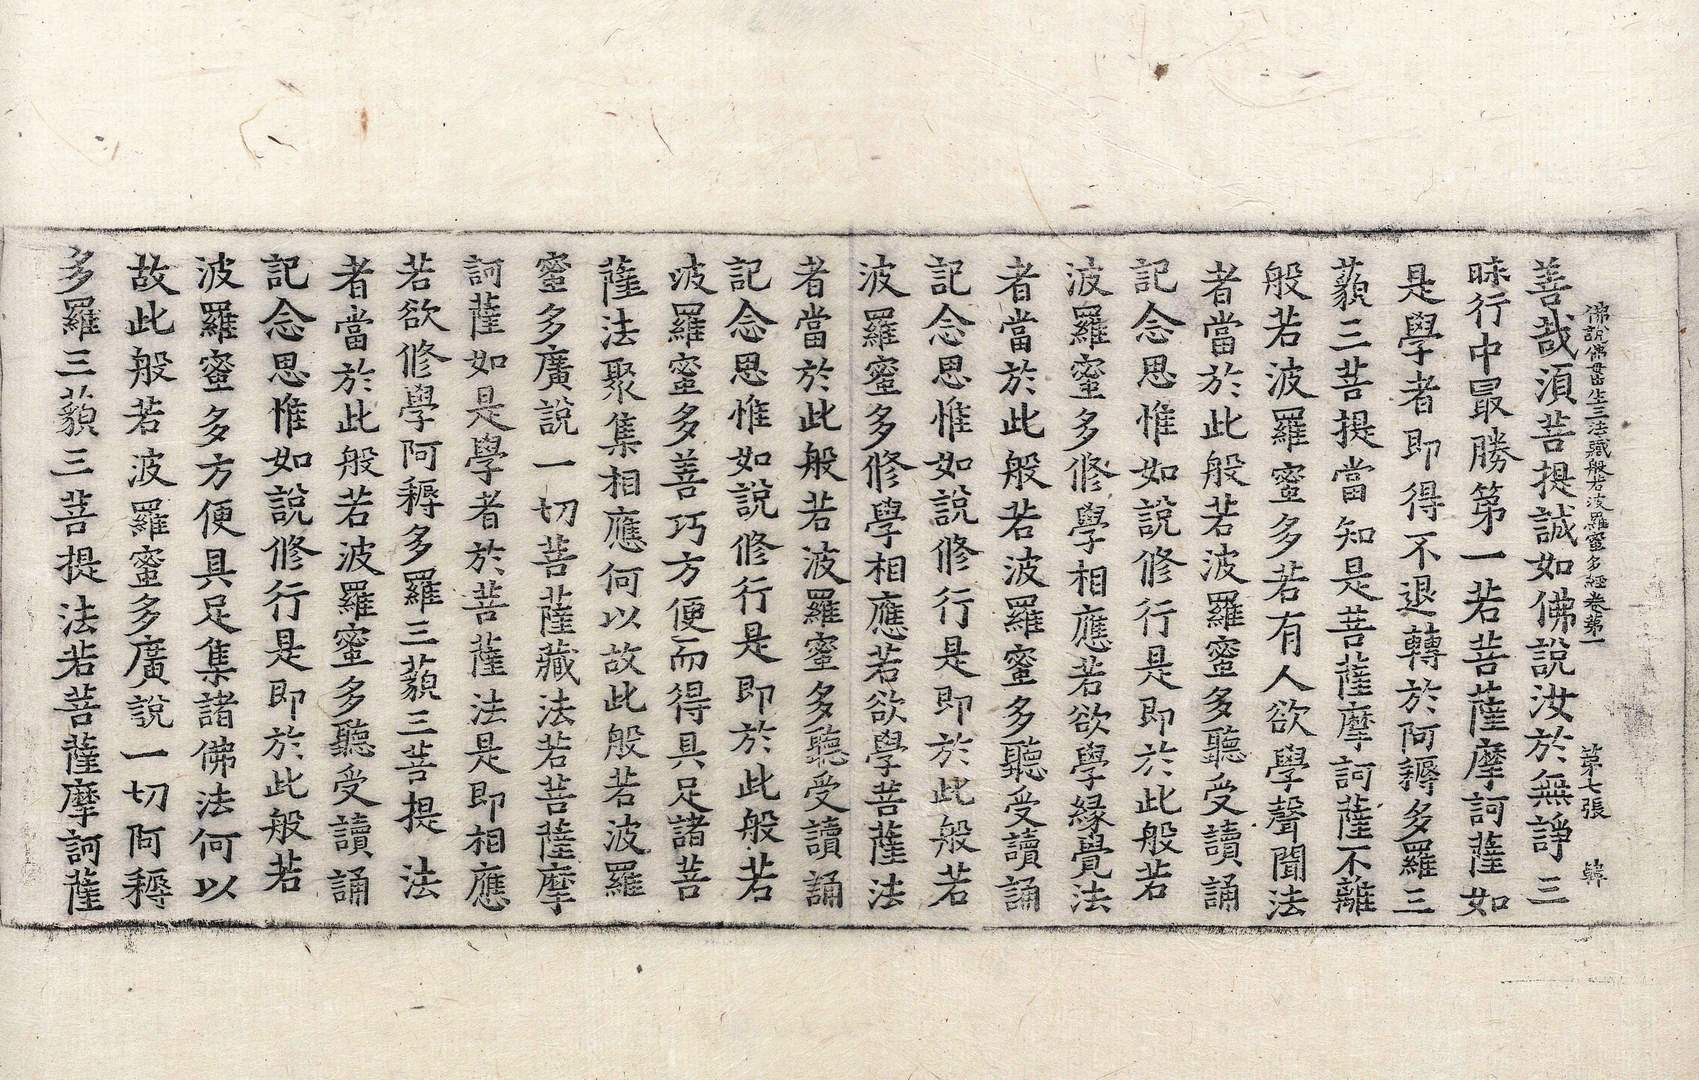 佛說佛毋出生三法藏般若波羅蜜多經卷第一 第七張 韓
善哉湏菩提誠如佛說汝於無諍三
昧行中最勝第一若菩薩摩訶薩如
是學者即得不退轉於阿耨多羅三
藐三菩提當知是菩薩摩訶薩不離
般若波羅蜜多若有人欲學聲聞法
者當於此般若波羅蜜多聽受讀誦
記念思惟如說修行是即於此般若
波羅蜜多修學相應若欲學緣覺法
者當於此般若波羅蜜多聽受讀誦
記念思惟如說修行是即於此般若
波羅蜜多修學相應若欲學菩薩法
者當於此般若波羅蜜多聽受讀誦
記念思惟如說修行是即於此般若
波羅蜜多善巧方便而得具足諸菩
薩法聚集相應何以故此般若波羅
蜜多廣說一切菩薩藏法若菩薩摩
訶薩如是學者於菩薩法是即相應
若欲修學阿耨多羅三藐三菩提法
者當於此般若波羅蜜多聽受讀誦
記念思惟如說修行是即於此般若
波羅蜜多方便具足集諸佛法何以
故此般若波羅蜜多廣說一切阿耨
多羅三藐三菩提法若菩薩摩訶薩